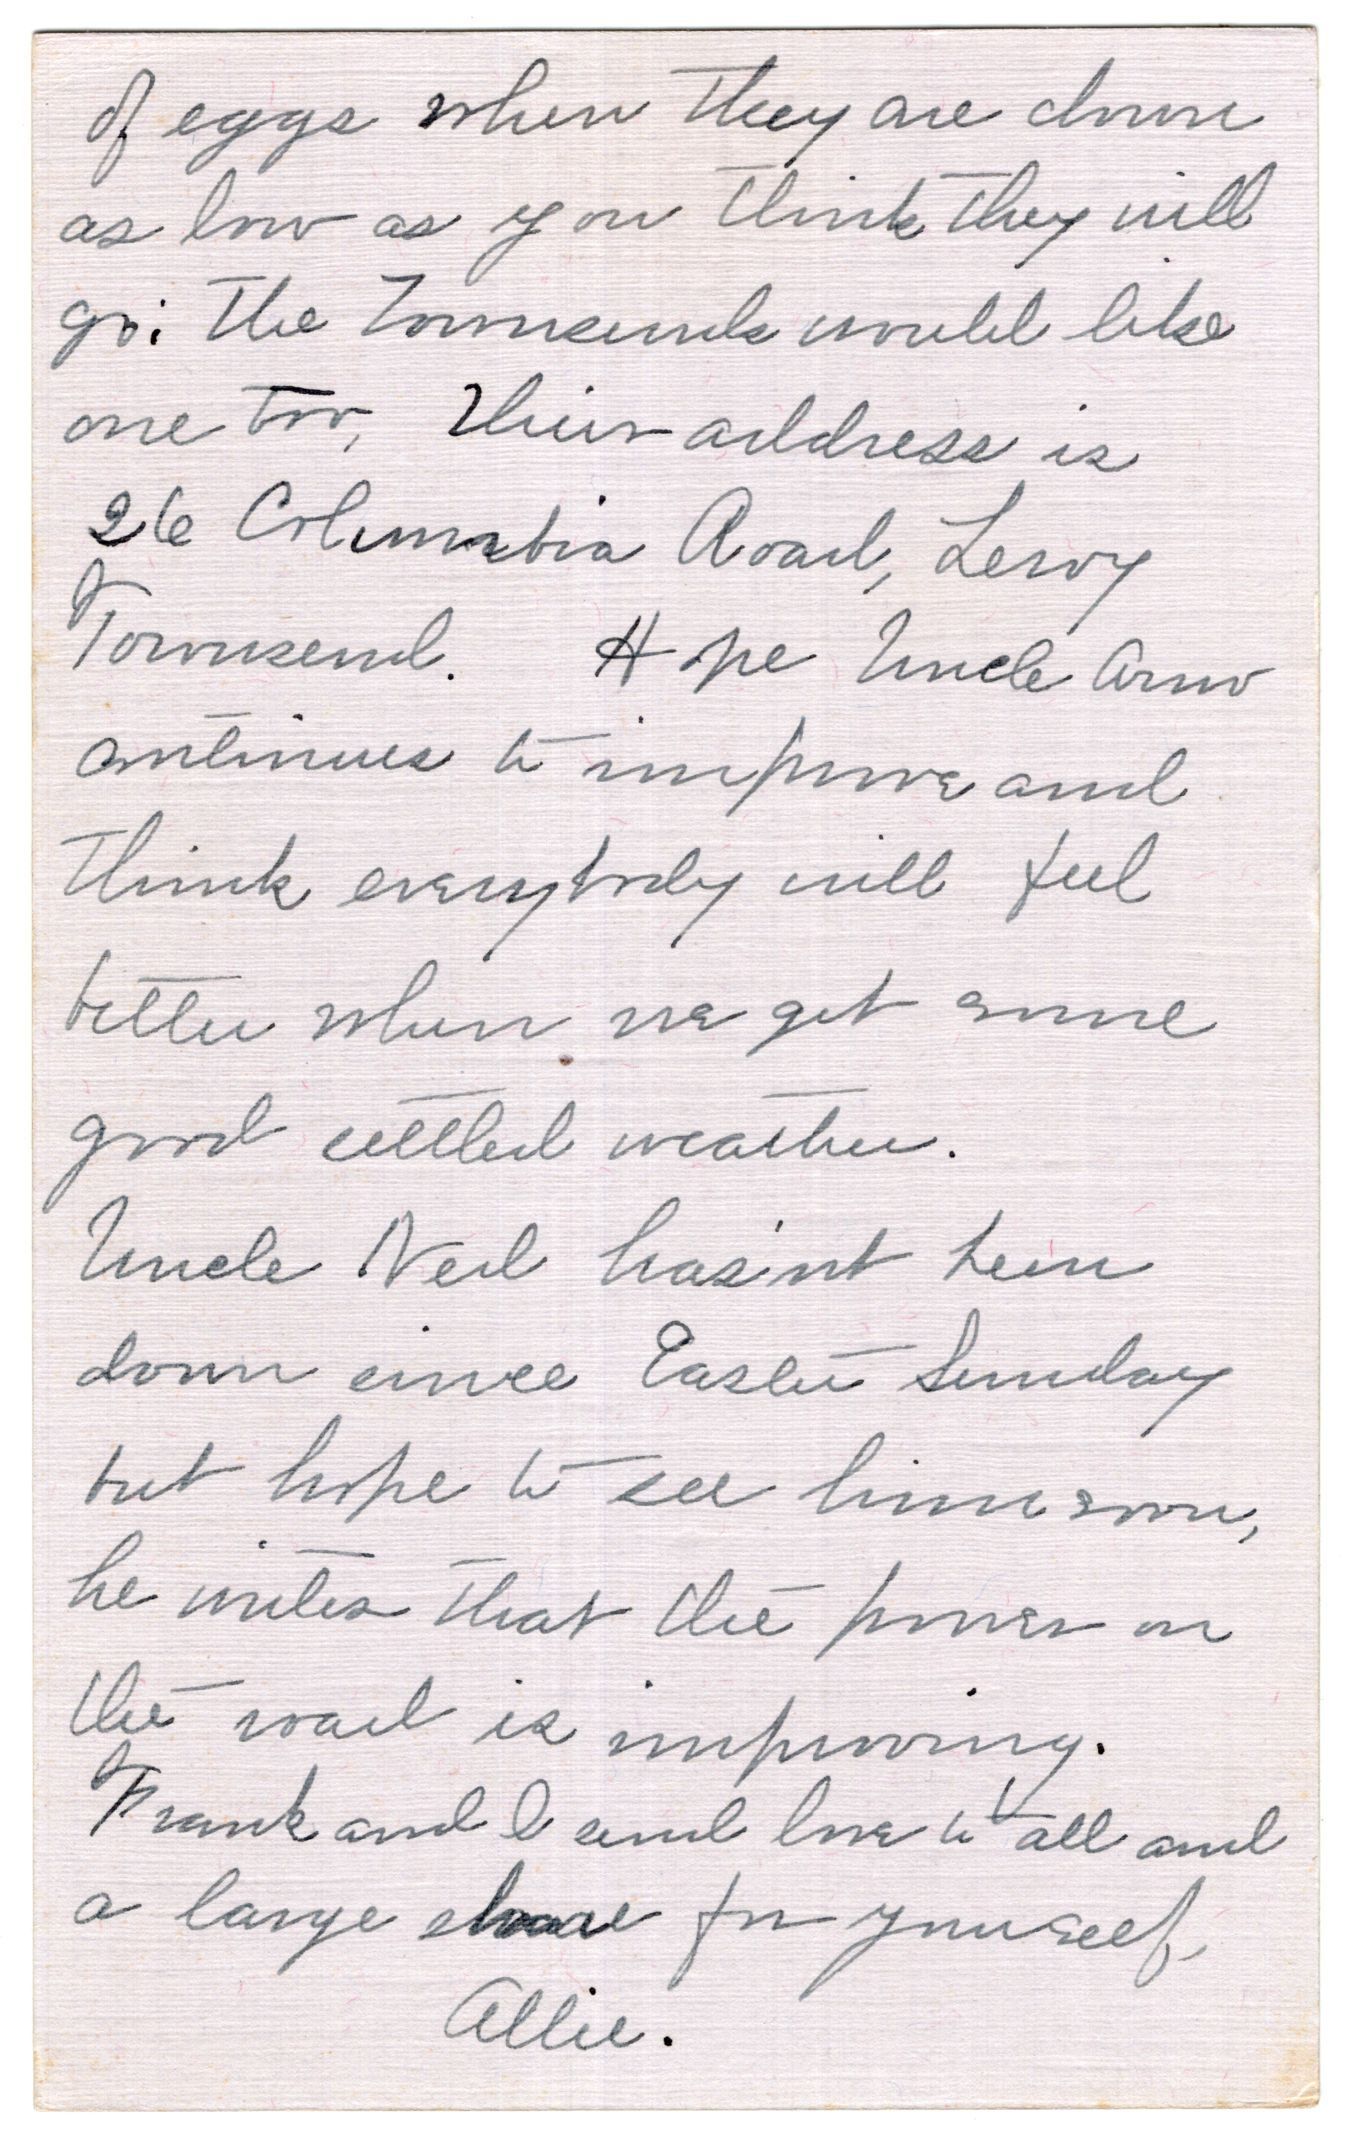 of eggs when they are down
as low as you think they will
go. The Townsends would like
one too, Their address is
26 Columbia Road, Leroy
Townsend. Hope Uncle Arno
continues to improve and
think everybody will feel
better when we get some
good settled weather.
Uncle Neil has'nt been
down since Easter Sunday
but hope to see him soon,
he writes that the power on
the road is improving.
Frank and I send love to all and
a large share for yourself,
Allie.